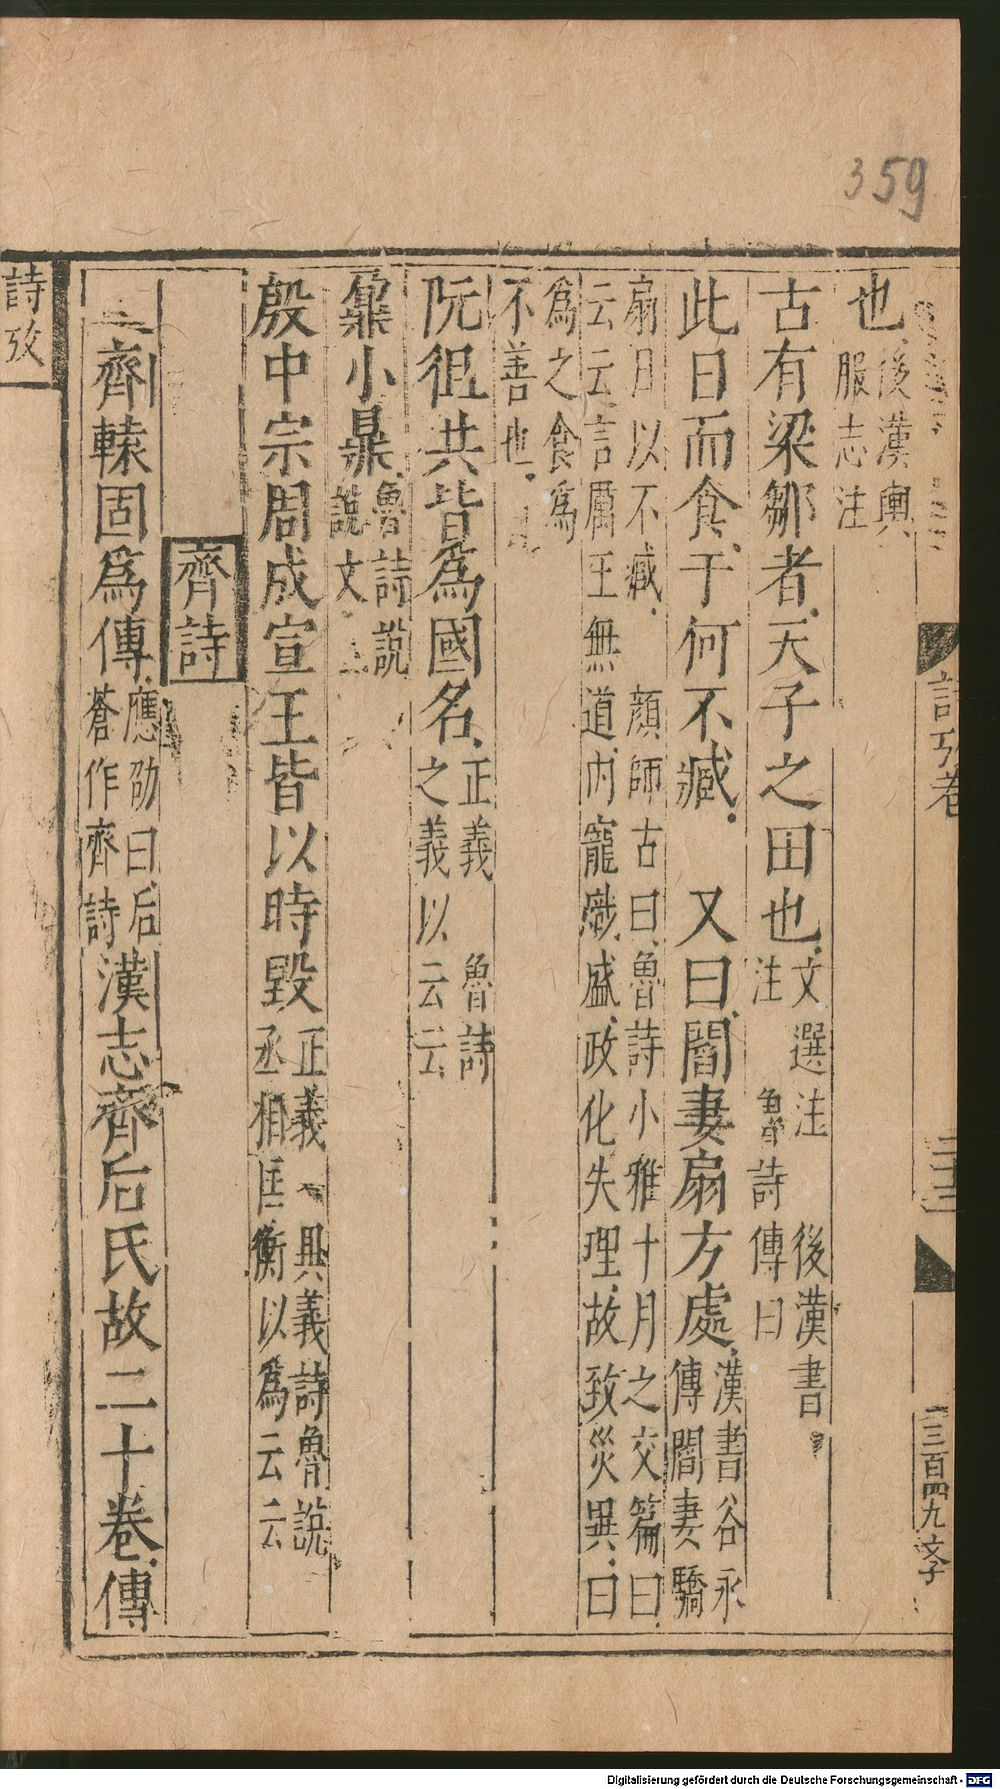 359
詩攷卷
三百四九文字
也後漢輿服志注
古有梁鄒者天子之田也文選注 後漢書注 魯詩傳曰
此日而食于何不臧 又曰閻妻扇方處漢書谷永傳閻妻驕
扇日以不臧 顏師古曰魯詩小雅十月之交篇曰
云云言厲王無道內寵熾盛政化失理故致災異日
為之食為不善也
阮徂共皆為國名正義 魯詩之義以云云
鼐小鼎魯詩說 說文
殷中宗周成宣王皆以時毀正義 異義詩魯說丞相匡衡以為云云
齊詩
齊轅固為傳應劭曰后蒼作齊詩漢志齊后氏故二十卷傳
詩攷
Digitalisierung gefördert durch die Deutsche Forschungsgemeinschaft - DFG